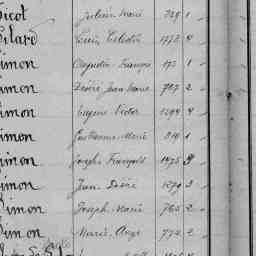 Julien Marie 729 1
Louis Celestin 1773 4
Simon Augustin François 1
Simon Désiré Jean Marie 707 2
Simon Eugène Victor 1294 4
Simon Guillaume Marie 810 1
Simon Joseph François 1475 3
Simon Jean Désiré 1279 3
Simon Joseph Marie 765 2
Simon Marie Ange 774 2